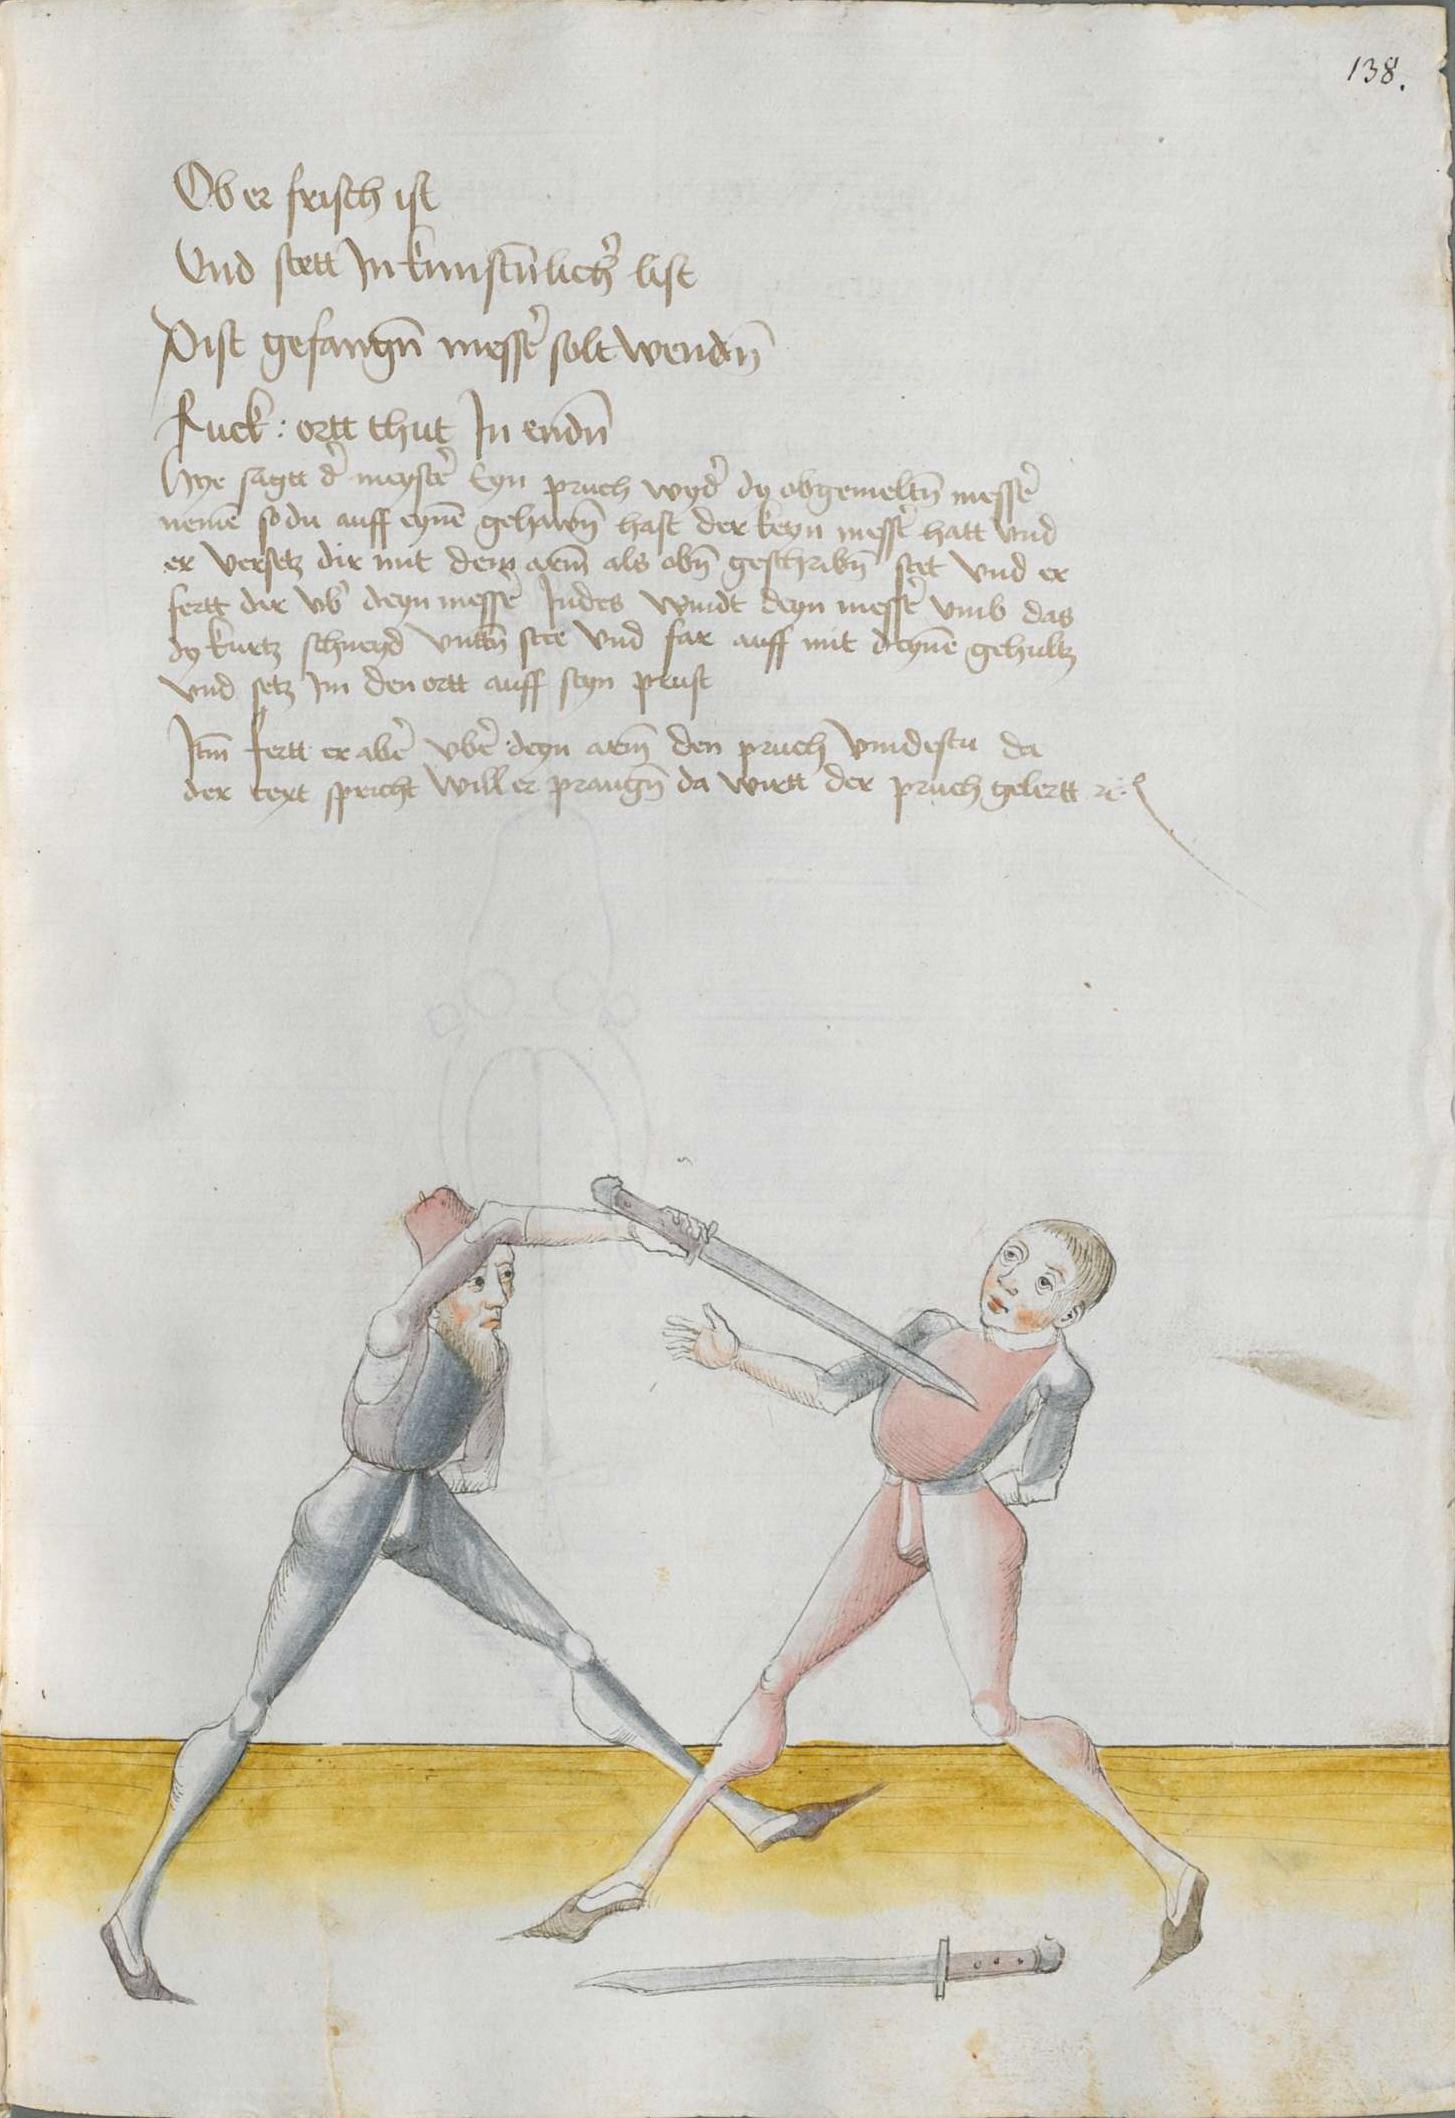 138.
Ob er frisch ist
Vnd stett In kunstn̄lich̕ list
Pist gefangn̄ mess̕ solt wendn̄
Ruck : ortt thut In endn̄
Hye sagtt d̕ meyst̕ Eyn pruch wyd̕ dy obgemeltn̄ mess̕
nemē so du auff eynē gehawn̄ hast der keyn mess̕ hatt vnd
er versetz dir mit dem arm̄ als obn̄ geschribn̄ stet vnd er
fertt dir vb̕ deyn mess̕ Indes windt deyn mess̕ vmb das
dy kurtz schneyd vnttn̄ stee vnd far auff mit deynē gehultz
vnd setz Im den ortt auff seyn prust
Itm̄ fertt er ab̕ vb̕ deyn arm̄ den pruch vindestu da
der text spricht will er prangn̄ da wirtt der pruch gelertt ꝛc